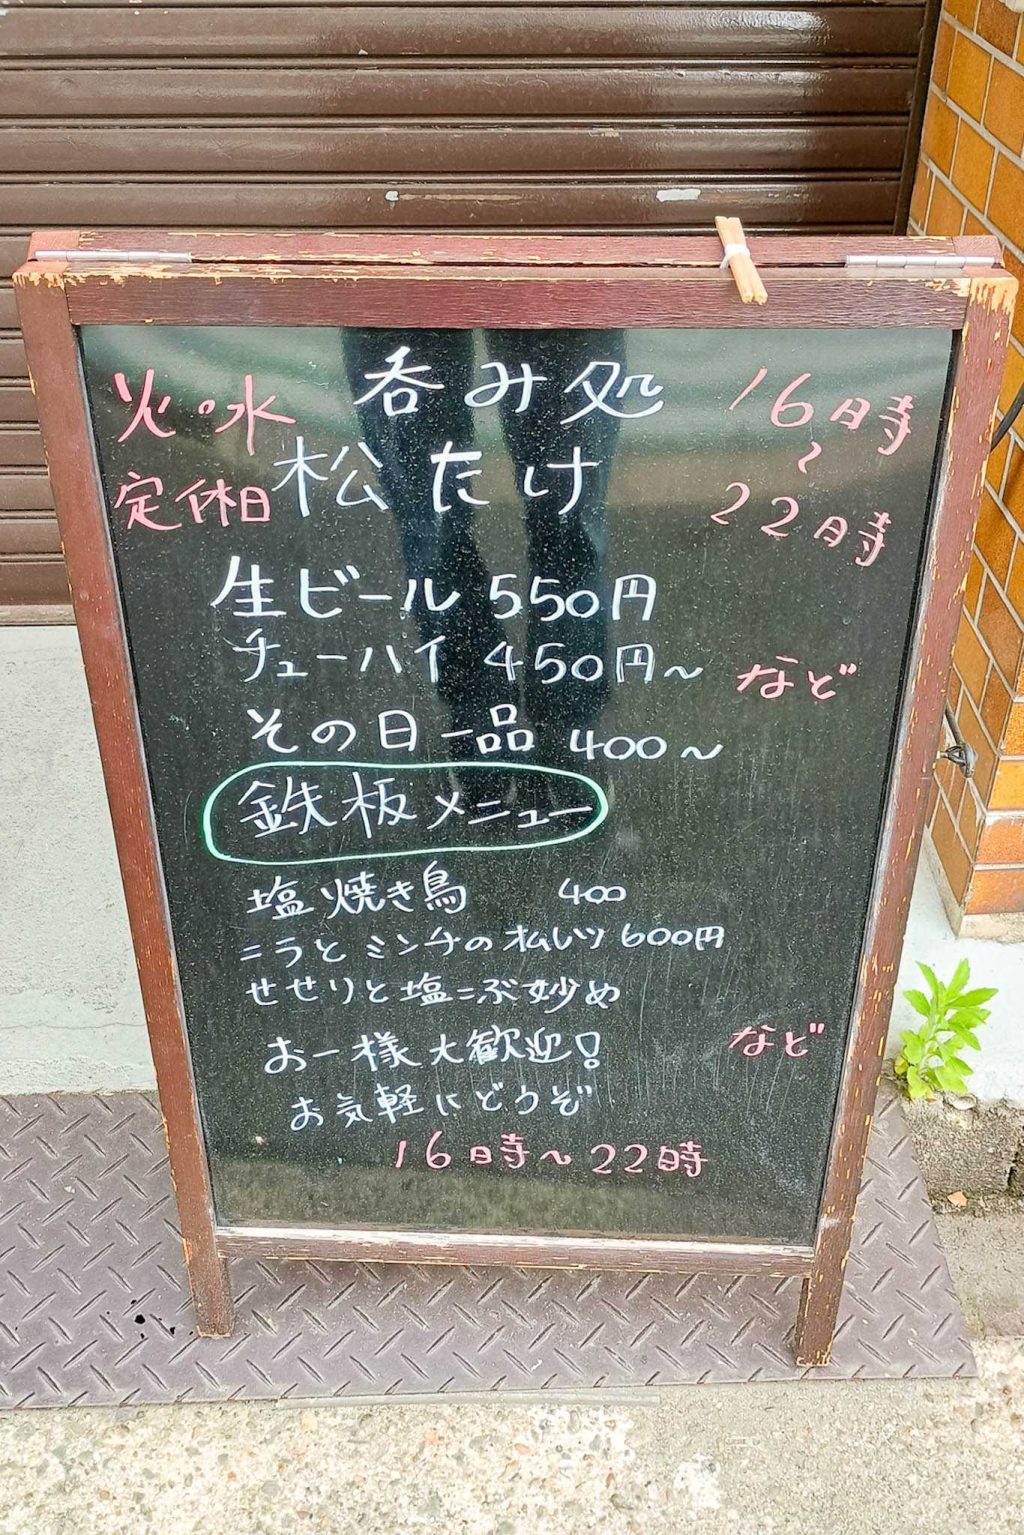 火・水
定休日
呑み処
松たけ
16時
〜
22時
生ビール 550円
チューハイ 450円〜
など
その日一品 400〜
鉄板メニュー
塩焼き鳥 400
ニラとミンチのオムレツ 600円
せせりと塩こぶ炒め
など
お一様大歓迎!
お気軽にどうぞ
16時〜22時